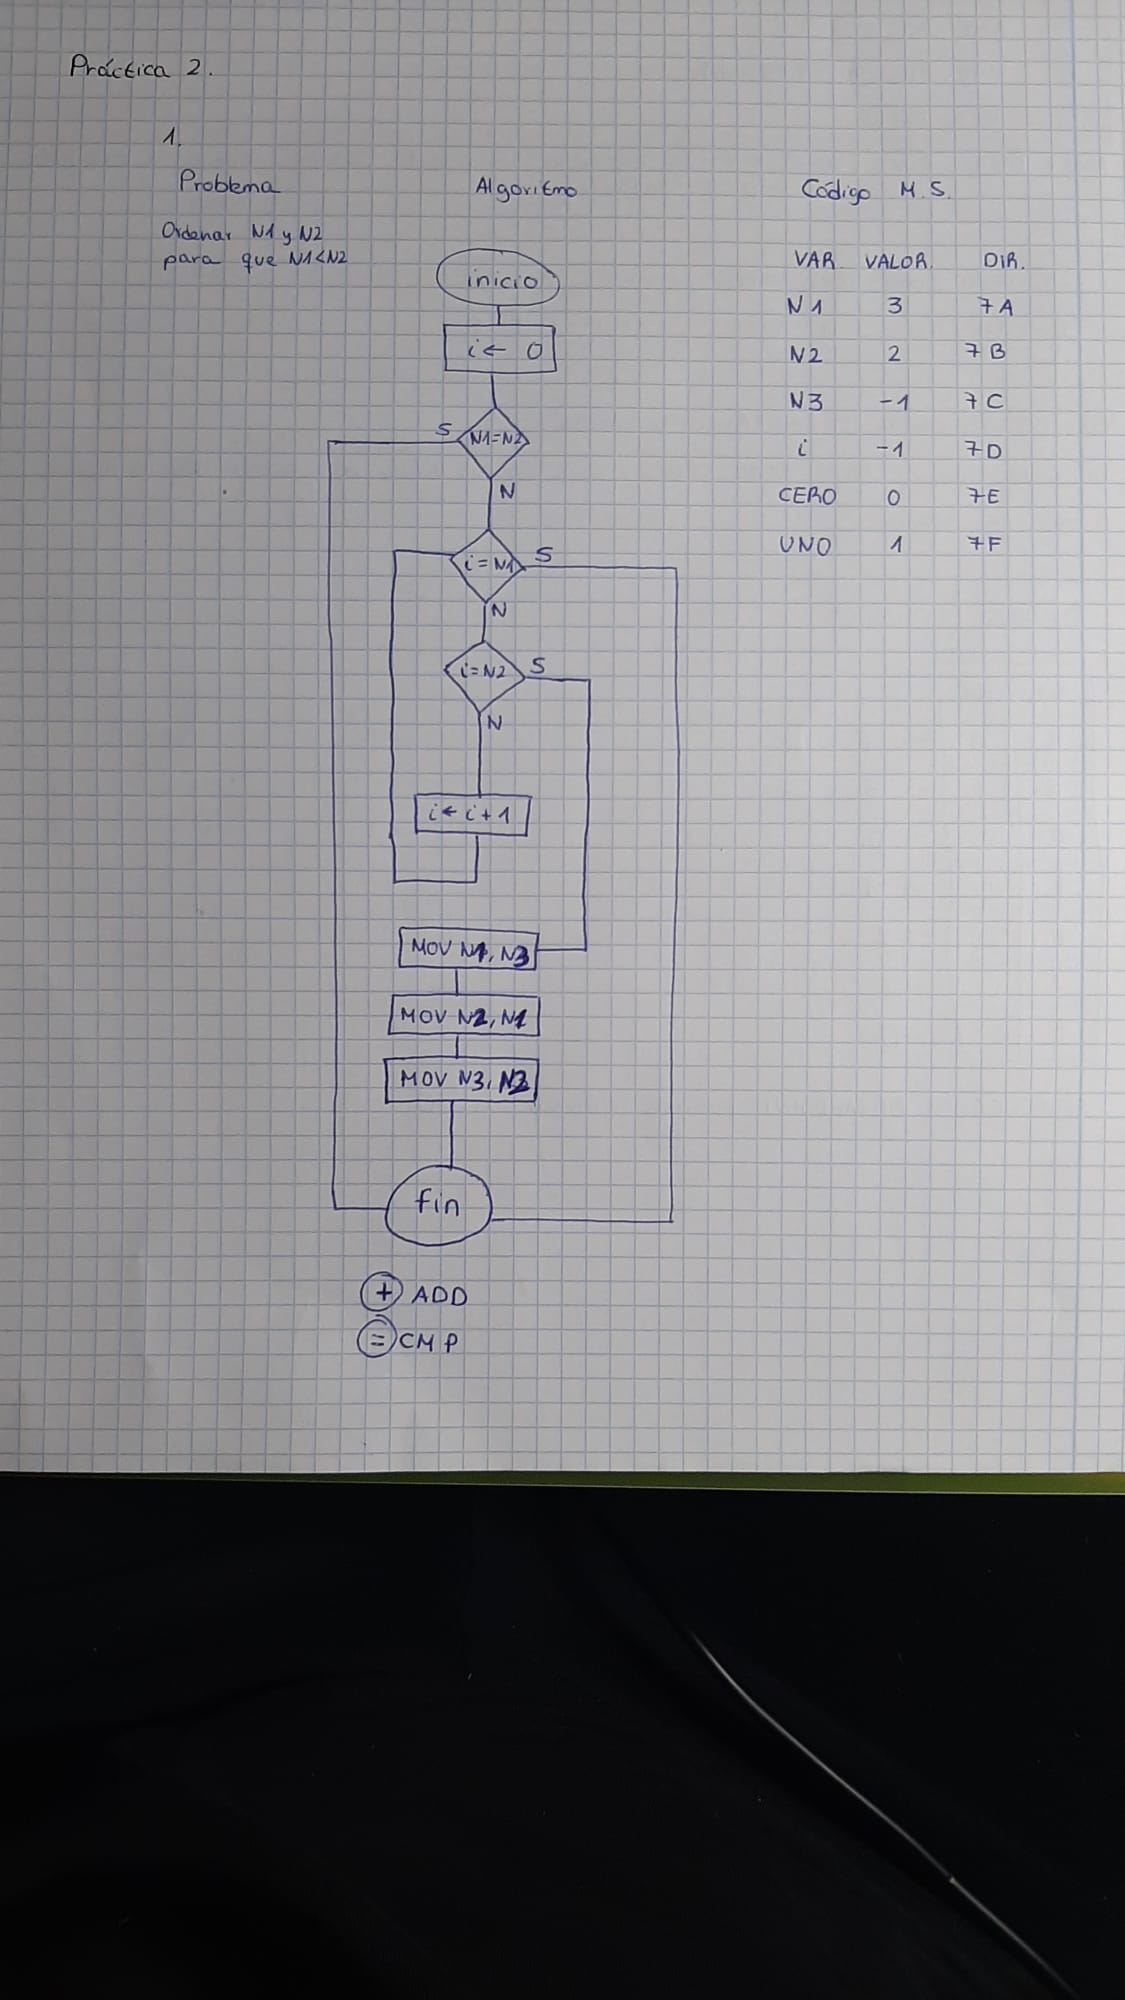 Práctica 2.
1.
Problema
Ordenar N1 y N2
para que N1<N2
Algoritmo
inicio
i ← 0
N1=N2
S
N
i=N1
S
N
i=N2
S
N
i ← i+1
MOV N1, N3
MOV N2, N1
MOV N3, N2
fin
+ ADD
= CMP
Código M.S.
VAR. VALOR. DIR.
N1 3 7A
N2 2 7B
N3 -1 7C
i -1 7D
CERO 0 7E
UNO 1 7F